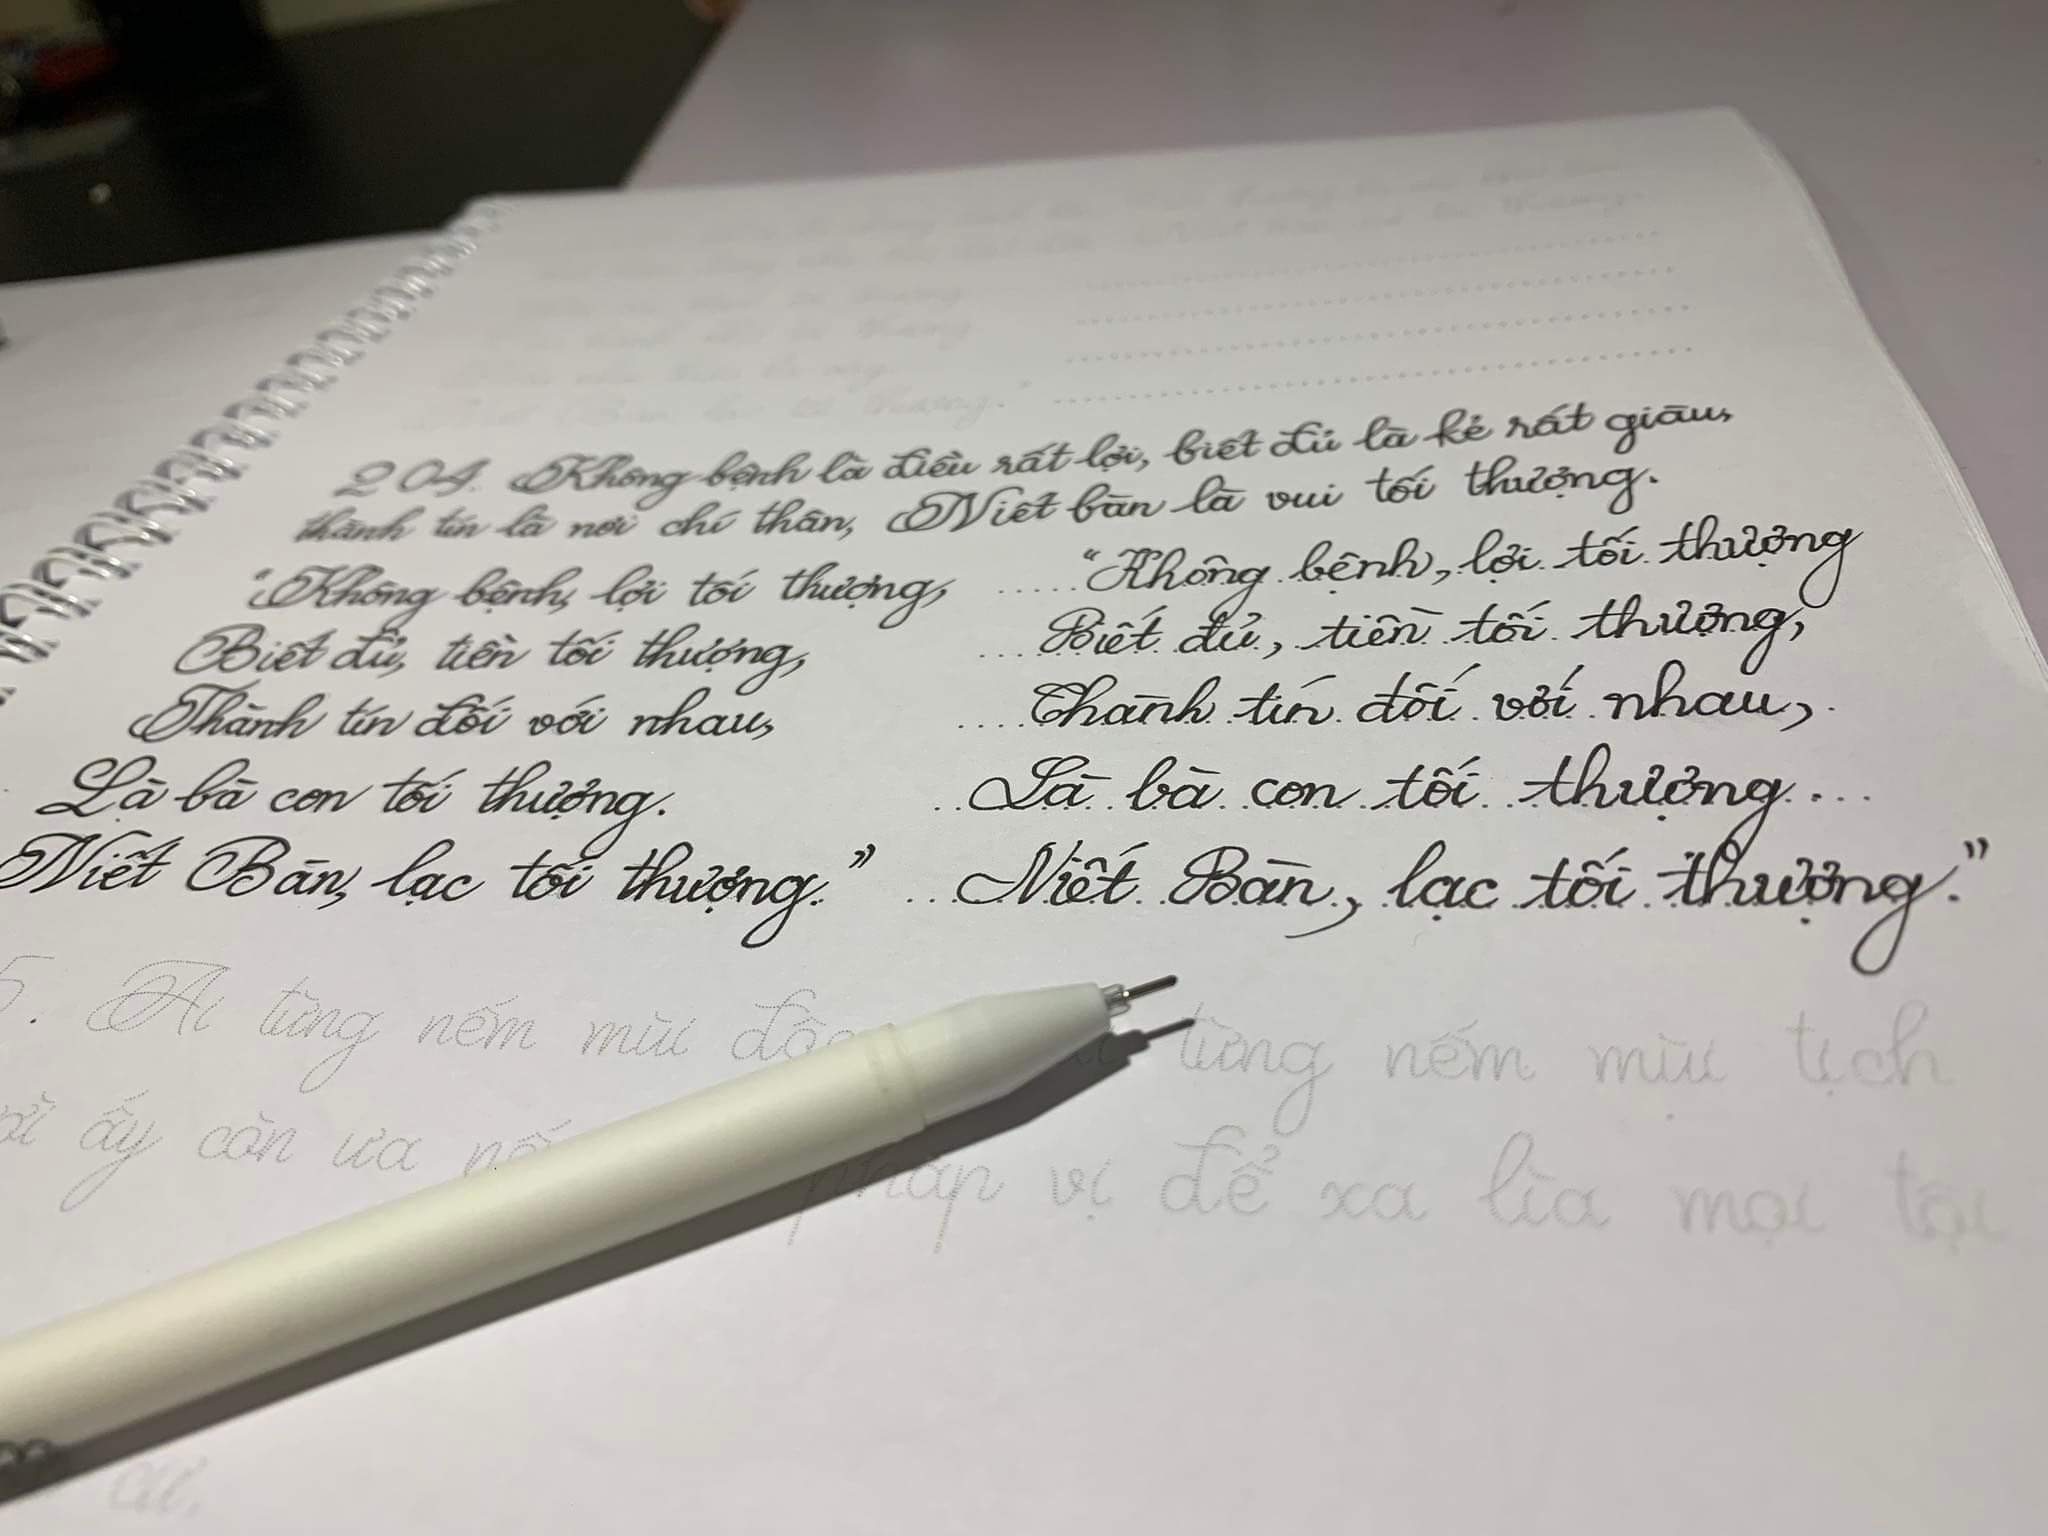 204. Không bệnh là điều rất lợi, biết đủ là kẻ rất giàu,
thành tín là nơi chí thân, Niết bàn là vui tối thượng.
"Không bệnh, lợi tối thượng, ....."Không bệnh, lợi tối thượng
Biết đủ, tiền tối thượng, ....Biết đủ, tiền tối thượng,
Thành tín đối với nhau, ....Thành tín đối với nhau,
Là bà con tối thượng. ..Là bà con tối thượng...
Niết Bàn, lạc tối thượng." ...Niết Bàn, lạc tối thượng."
5. Ai từng nếm mùi độc từng nếm mùi tịch
ấy còn ưa pháp vị để xa lìa mọi tội